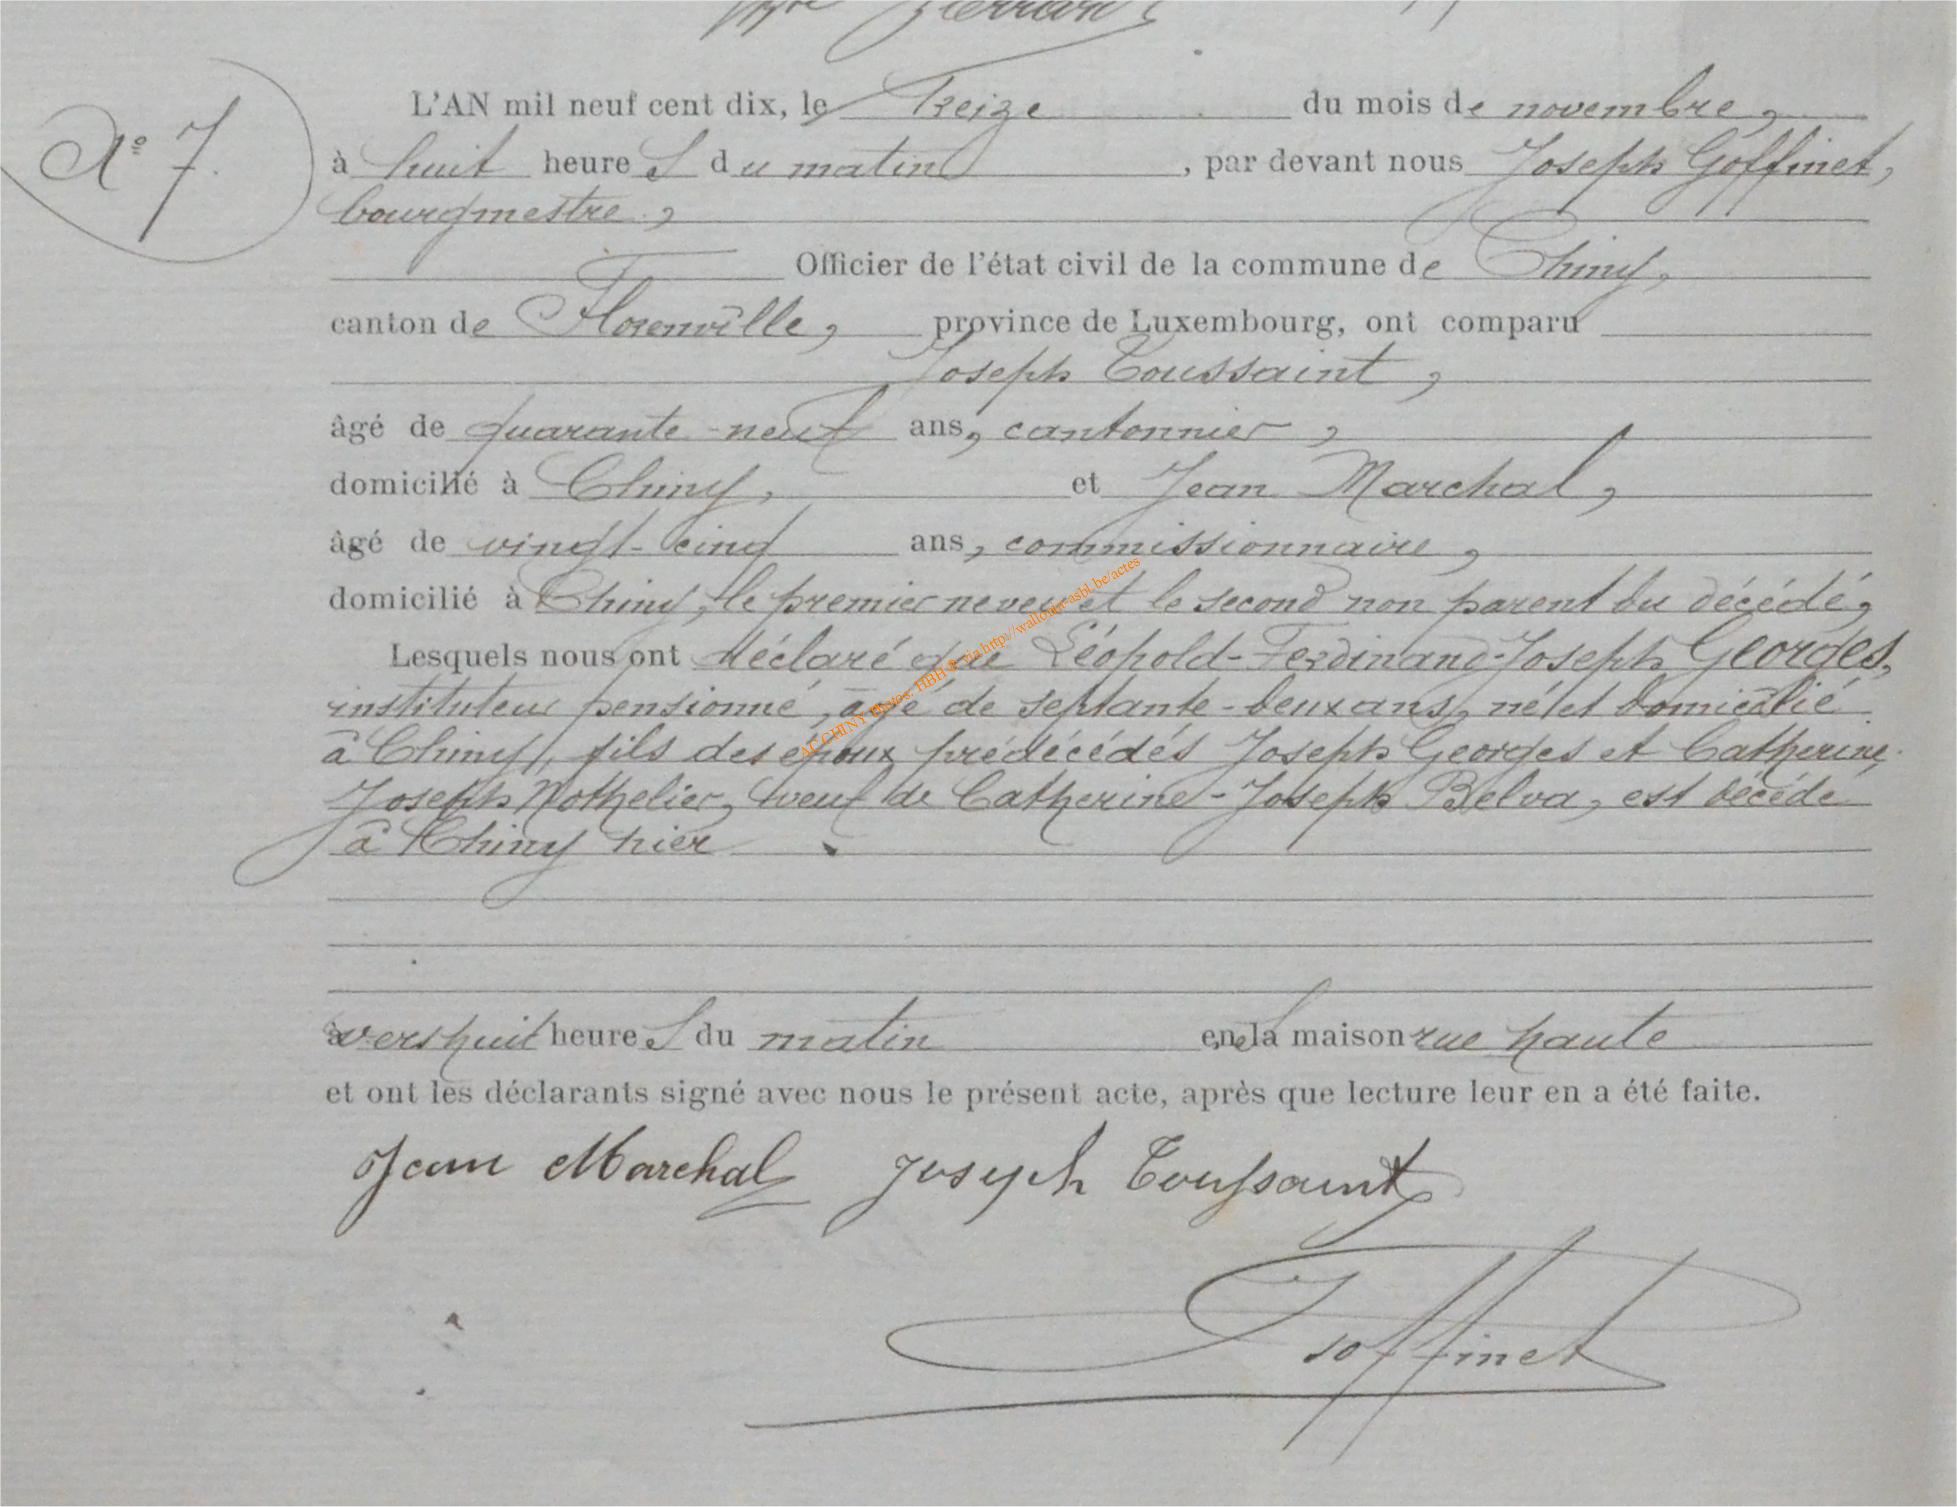 N° 7.
L'AN mil neuf cent dix, le Treize du mois de novembre,
à huit heureS du matin, par devant nous Joseph Goffinet,
bourgmestre,
Officier de l'état civil de la commune de Chiny,
canton de Florenville, province de Luxembourg, ont comparu
Joseph Toussaint,
âgé de quarante-neuf ans, cantonnier,
domicilié à Chiny, et Jean Marchal,
âgé de vingt-cinq ans, commissionnaire,
domicilié à Chiny, le premier neveu et le second non parent du décédé,
Lesquels nous ont déclaré que Léopold-Ferdinand-Joseph Georges,
instituteur pensionné, âgé de septante-deux ans, né et domicilié
à Chiny, fils des époux prédécédés Joseph Georges et Catherine
Joseph Nothelier, veuf de Catherine-Joseph Belva, est décédé
à Chiny hier
vers huit heureS du matin en sa maison rue haute
et ont les déclarants signé avec nous le présent acte, après que lecture leur en a été faite.
Jean Marchal Joseph Toussaint
Goffinet
AC CHINY Photos: HBH @ via http://wallonia-asbl.be/actes